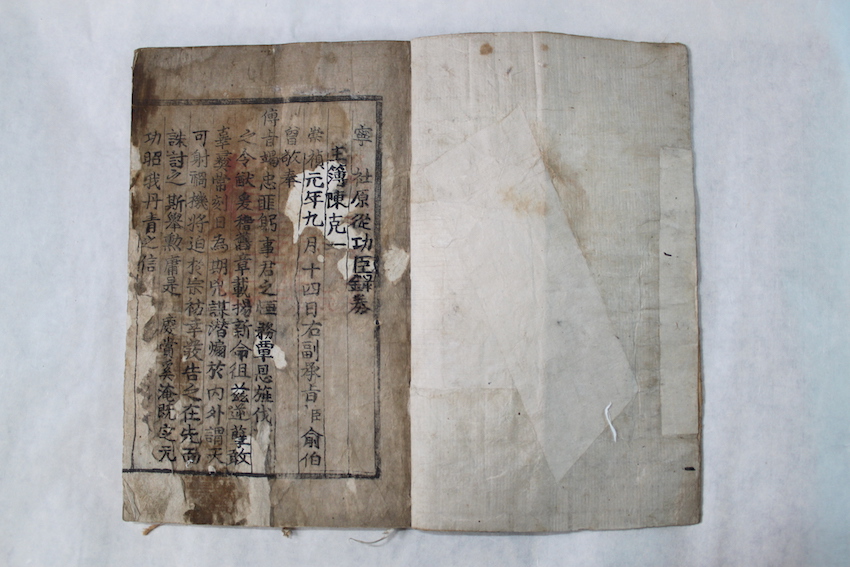 寧 社原從功臣錄券
主簿陳克一
崇禎元年九月十四日右副承旨臣俞伯
曾敬奉
傳旨竭忠匪躬事君之恒務覃恩旌伐
之令猷爰稽舊章載揚新命徂茲逆孽敢
刻日為期兇謀潛煽於內外謂天
可射禍機將迫於宗祊幸發告之在先而
誅討之斯舉勳庸是 慶賞奚淹既定元
功昭哉丹青之信